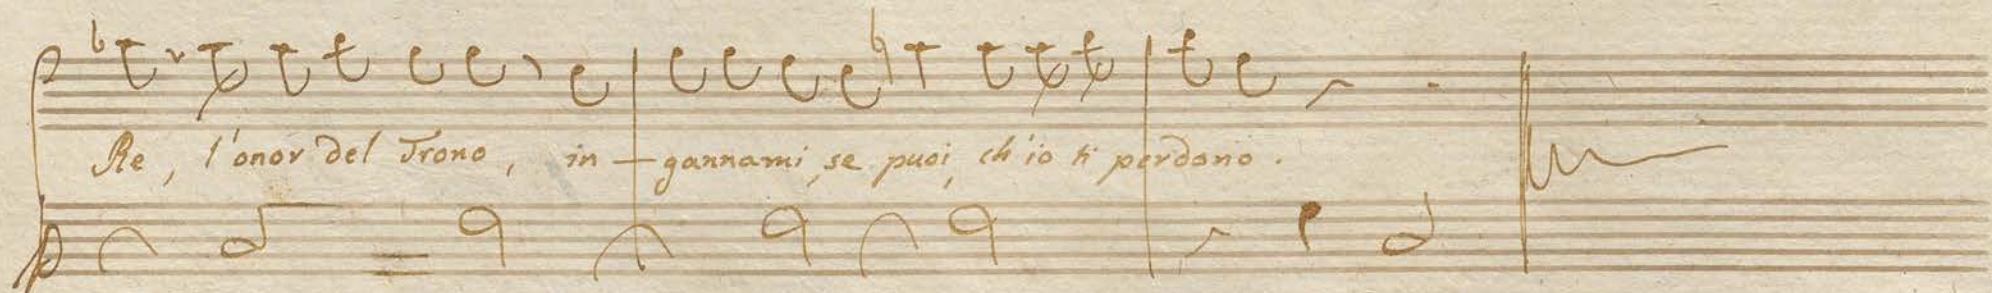 Re, l'onor del Trono, in-gannami, se puoi, ch'io ti perdono.